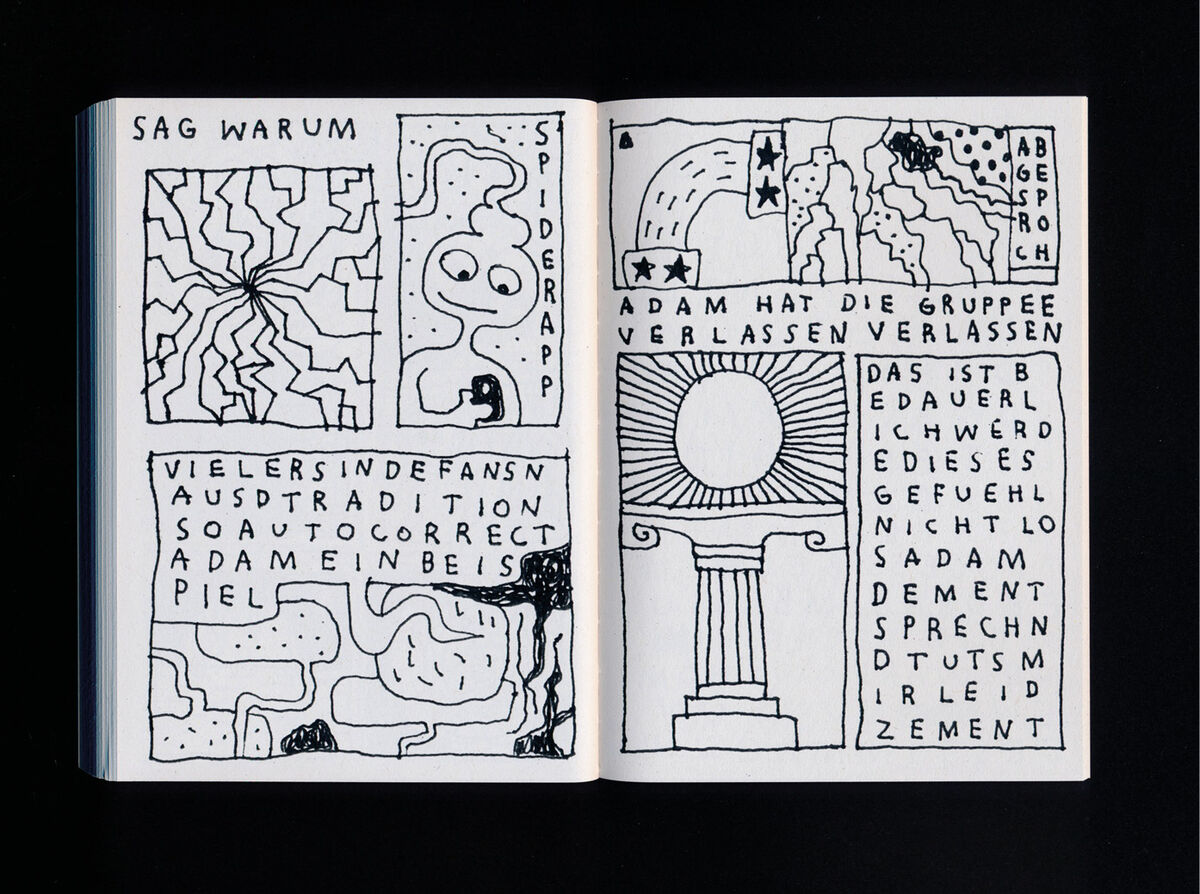 SAG WARUM
SPIDERAPP
VIELERSINDEFANSN
AUSDTRADITION
SOAUTOCORRECT
ADAMEINBEIS
PIEL
AB
GE
SP
RO
CH
ADAM HAT DIE GRUPPEE
VERLASSEN VERLASSEN
DAS IST B
EDAUERL
ICHWERD
EDIESES
GEFUEHL
NICHT LO
SADAM
DEMENT
SPRECHN
DTUTSM
IRLEID
ZEMENT